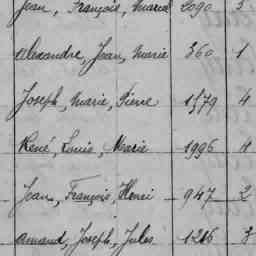 Jean, François, Marcel 2090 3
Alexandre, Jean, Marie 360 1
Joseph, Marie, Pierre 1579 4
René, Louis, Marie 1996 4
Jean, François, Henri 947 2
Armand, Joseph, Jules 1216 3